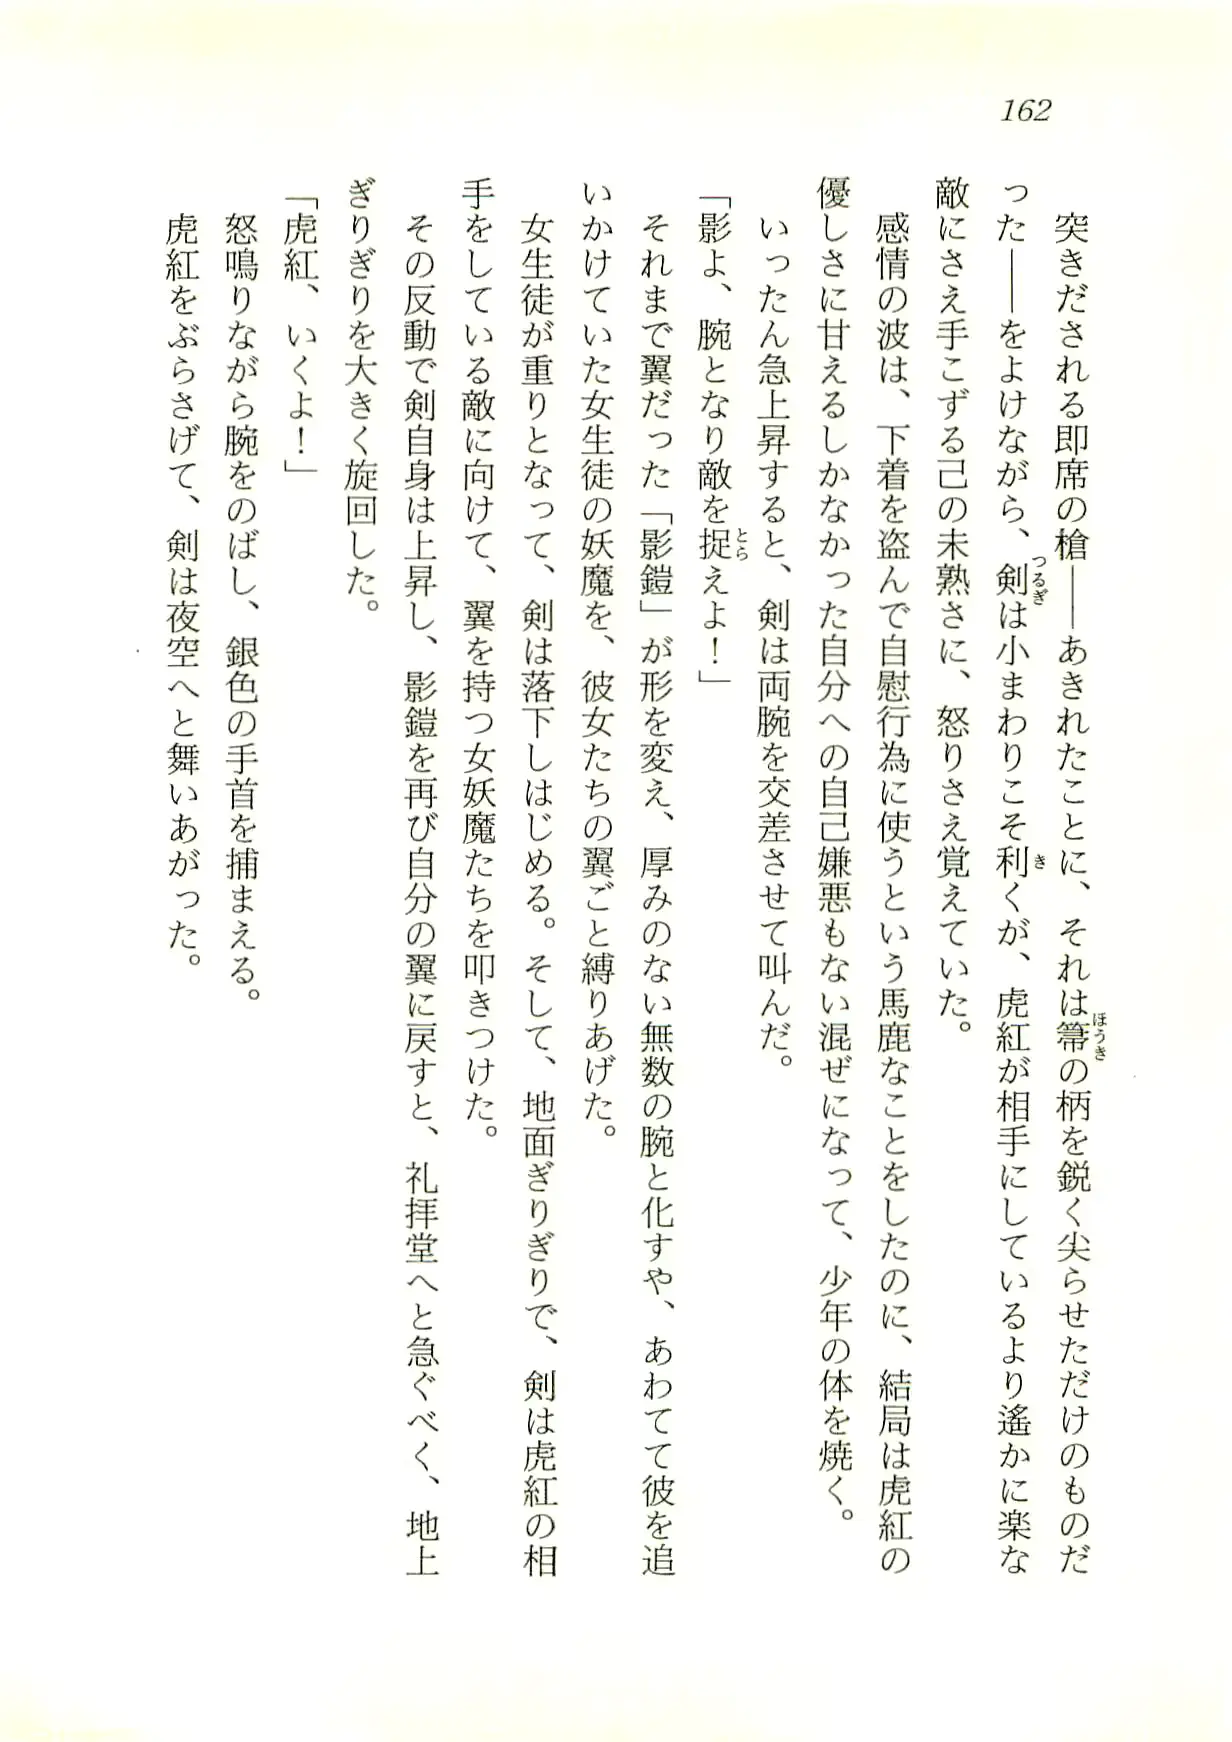 162
突きだされる即席の槍――あきれたことに、それは箒の柄を鋭く尖らせただけのものだ
った――をよけながら、剣は小まわりこそ利くが、虎紅が相手にしているより遙かに楽な
敵にさえ手こずる己の未熟さに、怒りさえ覚えていた。
感情の波は、下着を盗んで自慰行為に使うという馬鹿なことをしたのに、結局は虎紅の
優しさに甘えるしかなかった自分への自己嫌悪もない混ぜになって、少年の体を焼く。
いったん急上昇すると、剣は両腕を交差させて叫んだ。
「影よ、腕となり敵を捉えよ！」
それまで翼だった「影鎧」が形を変え、厚みのない無数の腕と化すや、あわてて彼を追
いかけていた女生徒の妖魔を、彼女たちの翼ごと縛りあげた。
女生徒が重りとなって、剣は落下しはじめる。そして、地面ぎりぎりで、剣は虎紅の相
手をしている敵に向けて、翼を持つ女妖魔たちを叩きつけた。
その反動で剣自身は上昇し、影鎧を再び自分の翼に戻すと、礼拝堂へと急ぐべく、地上
ぎりぎりを大きく旋回した。
「虎紅、いくよ！」
怒鳴りながら腕をのばし、銀色の手首を捕まえる。
虎紅をぶらさげて、剣は夜空へと舞いあがった。